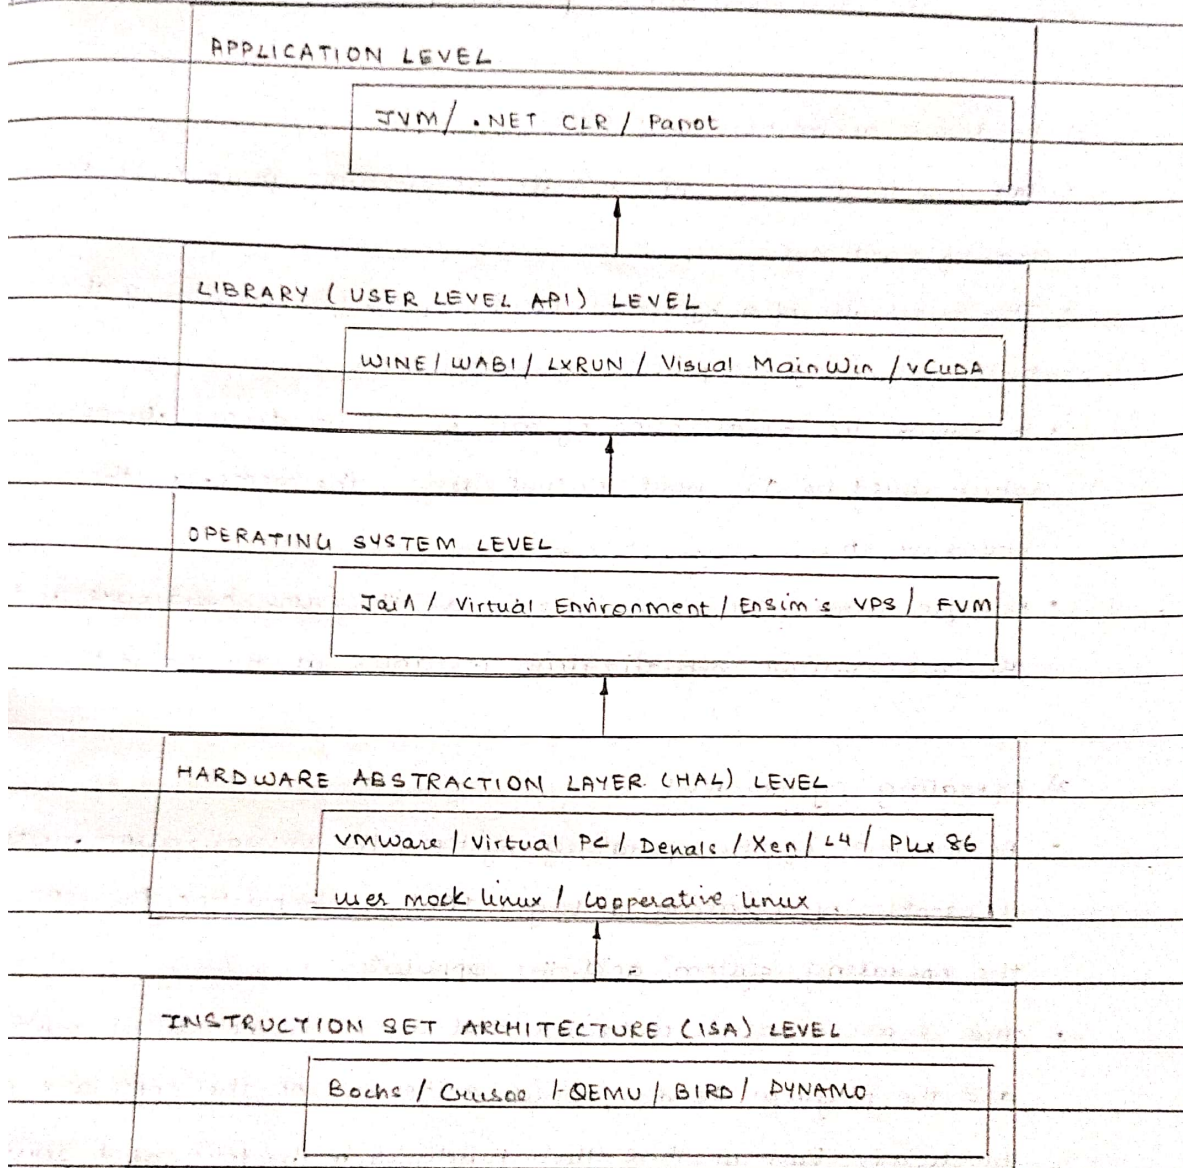 APPLICATION LEVEL
JVM / .NET CLR / Parrot
LIBRARY (USER LEVEL API) LEVEL
WINE / WABI / LXRUN / Visual MainWin / vCUDA
OPERATING SYSTEM LEVEL
Jail / Virtual Environment / Ensim's VPS / FVM
HARDWARE ABSTRACTION LAYER (HAL) LEVEL
VMware / Virtual PC / Denals / Xen / L4 / Plex 86
user mock linux / Copperative linux
INSTRUCTION SET ARCHITECTURE (ISA) LEVEL
Bochs / Crusoe / QEMU / BIRD / DYNAMO